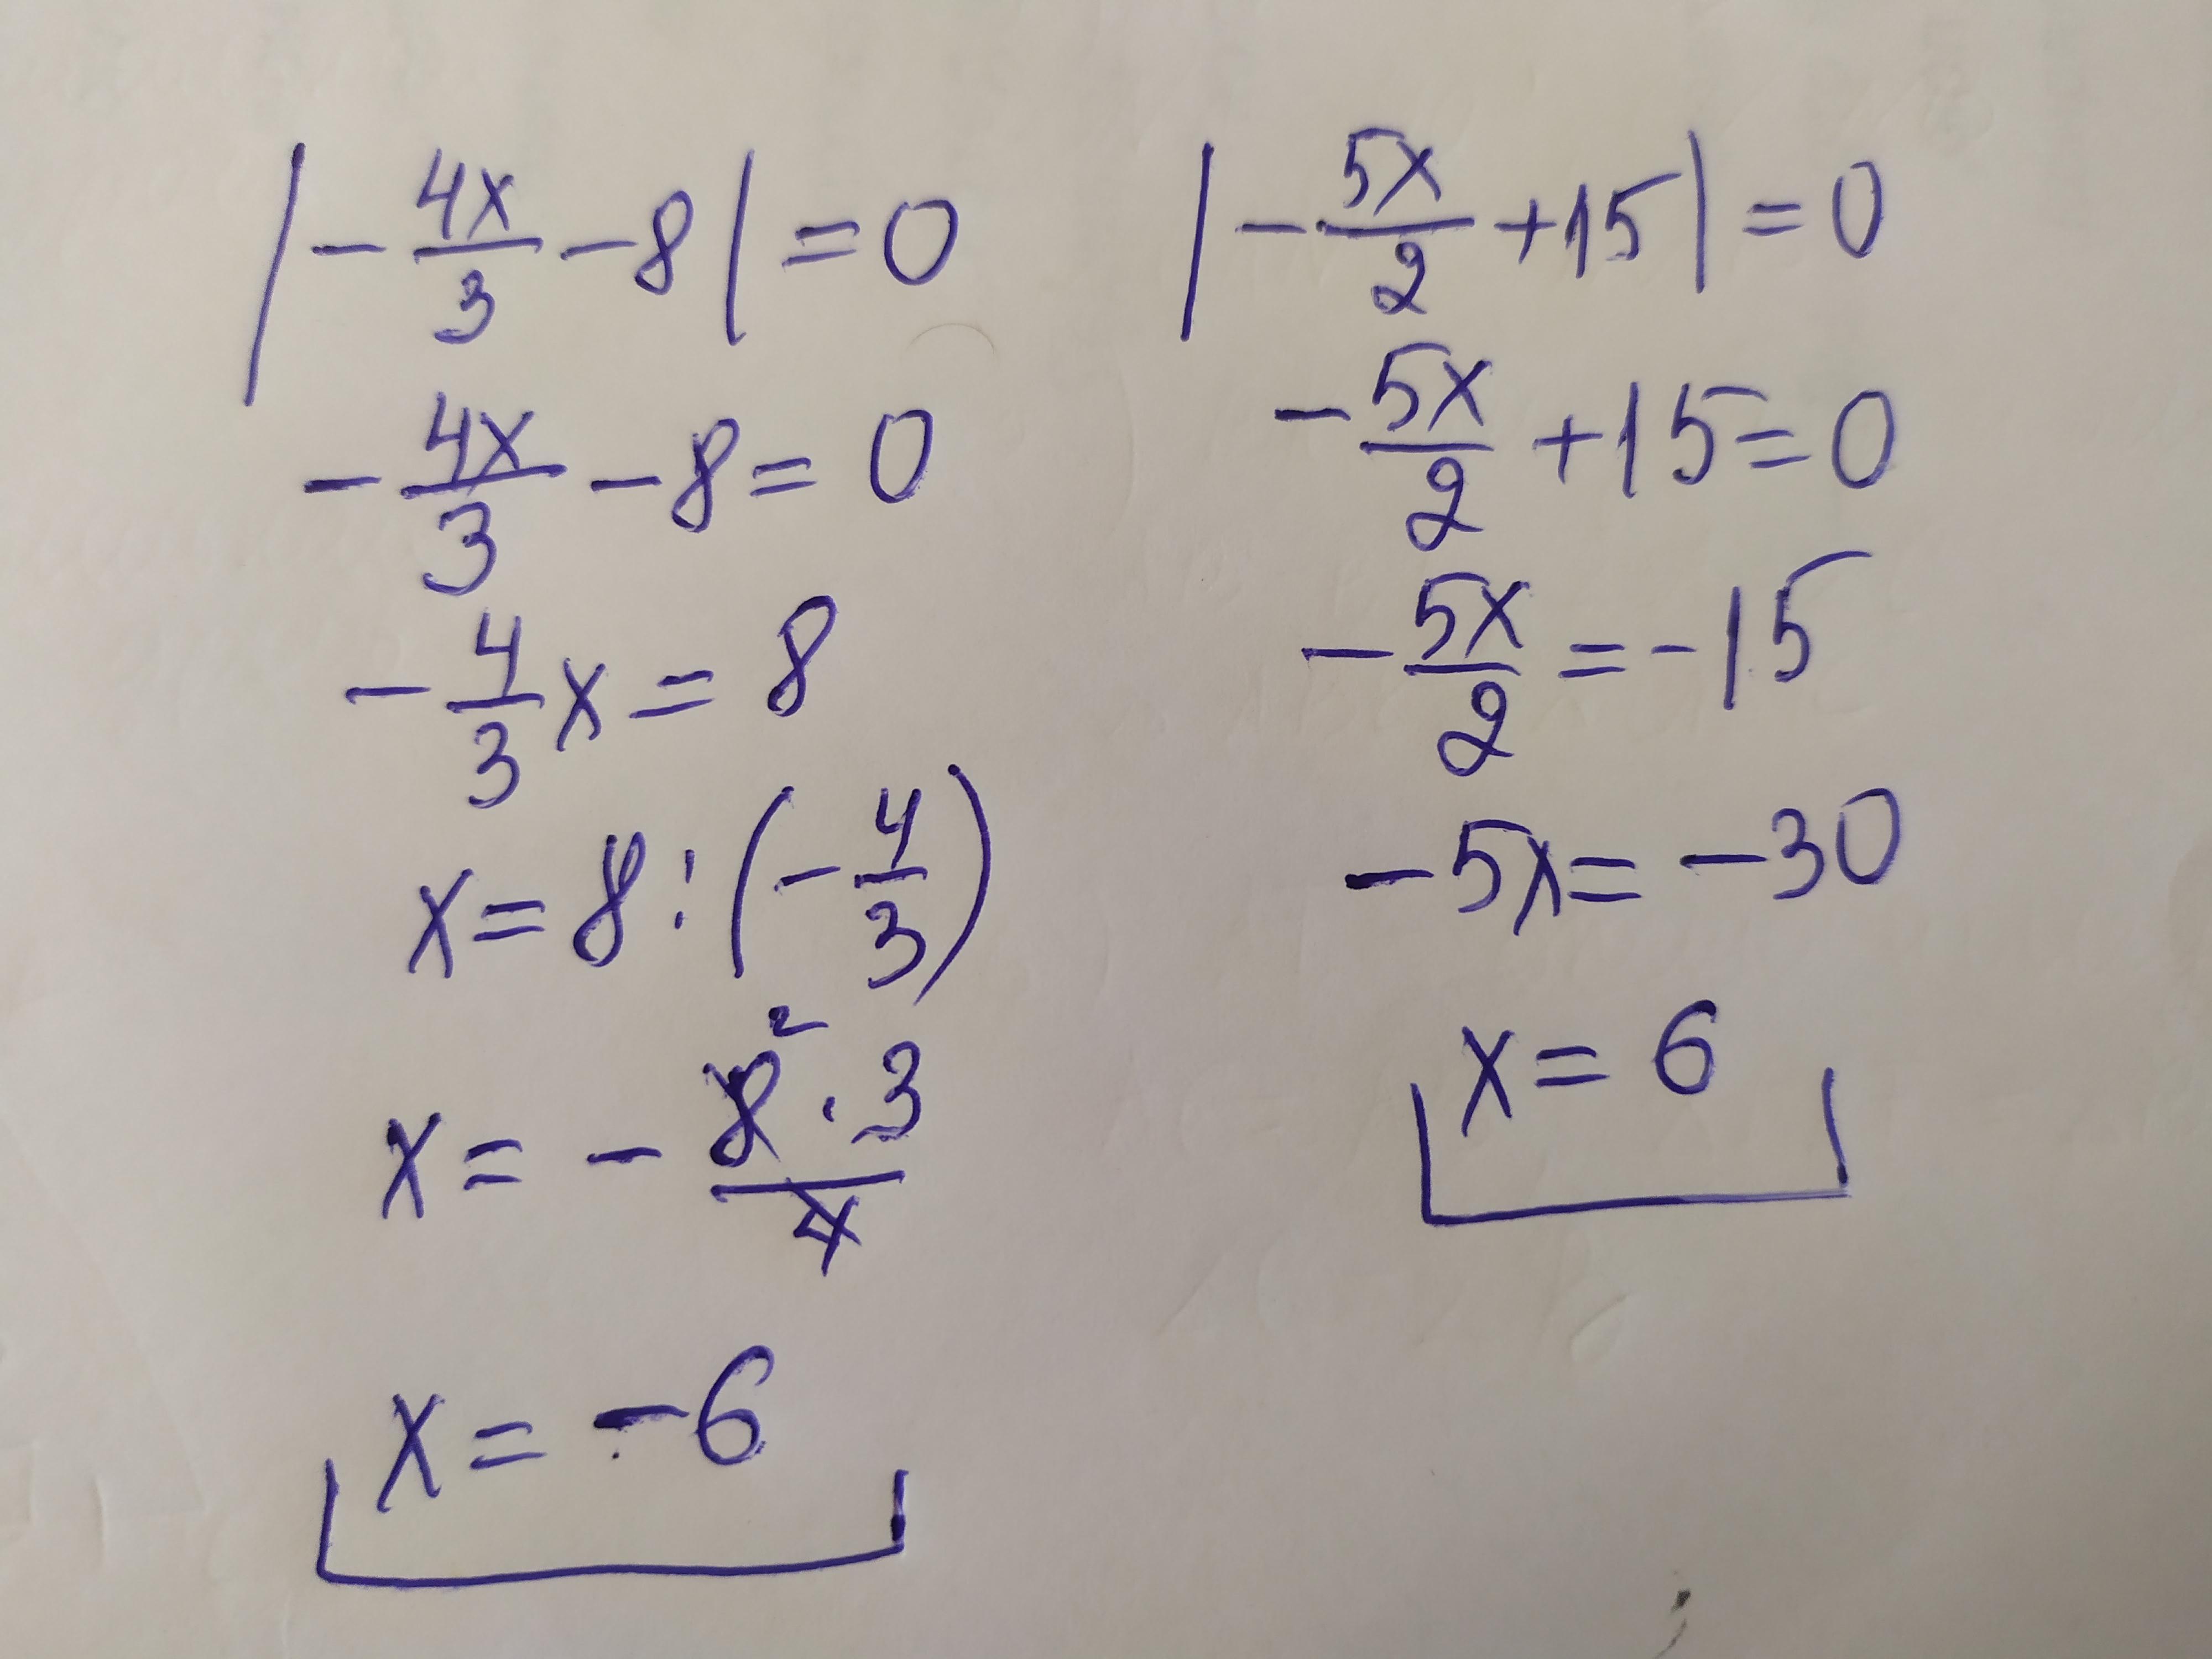 |-4x/3 - 8| = 0
-4x/3 - 8 = 0
-4/3 x = 8
x = 8 : (-4/3)
x = - 8² · 3 / 4
x = -6
|-5x/2 + 15| = 0
-5x/2 + 15 = 0
-5x/2 = -15
-5x = -30
x = 6